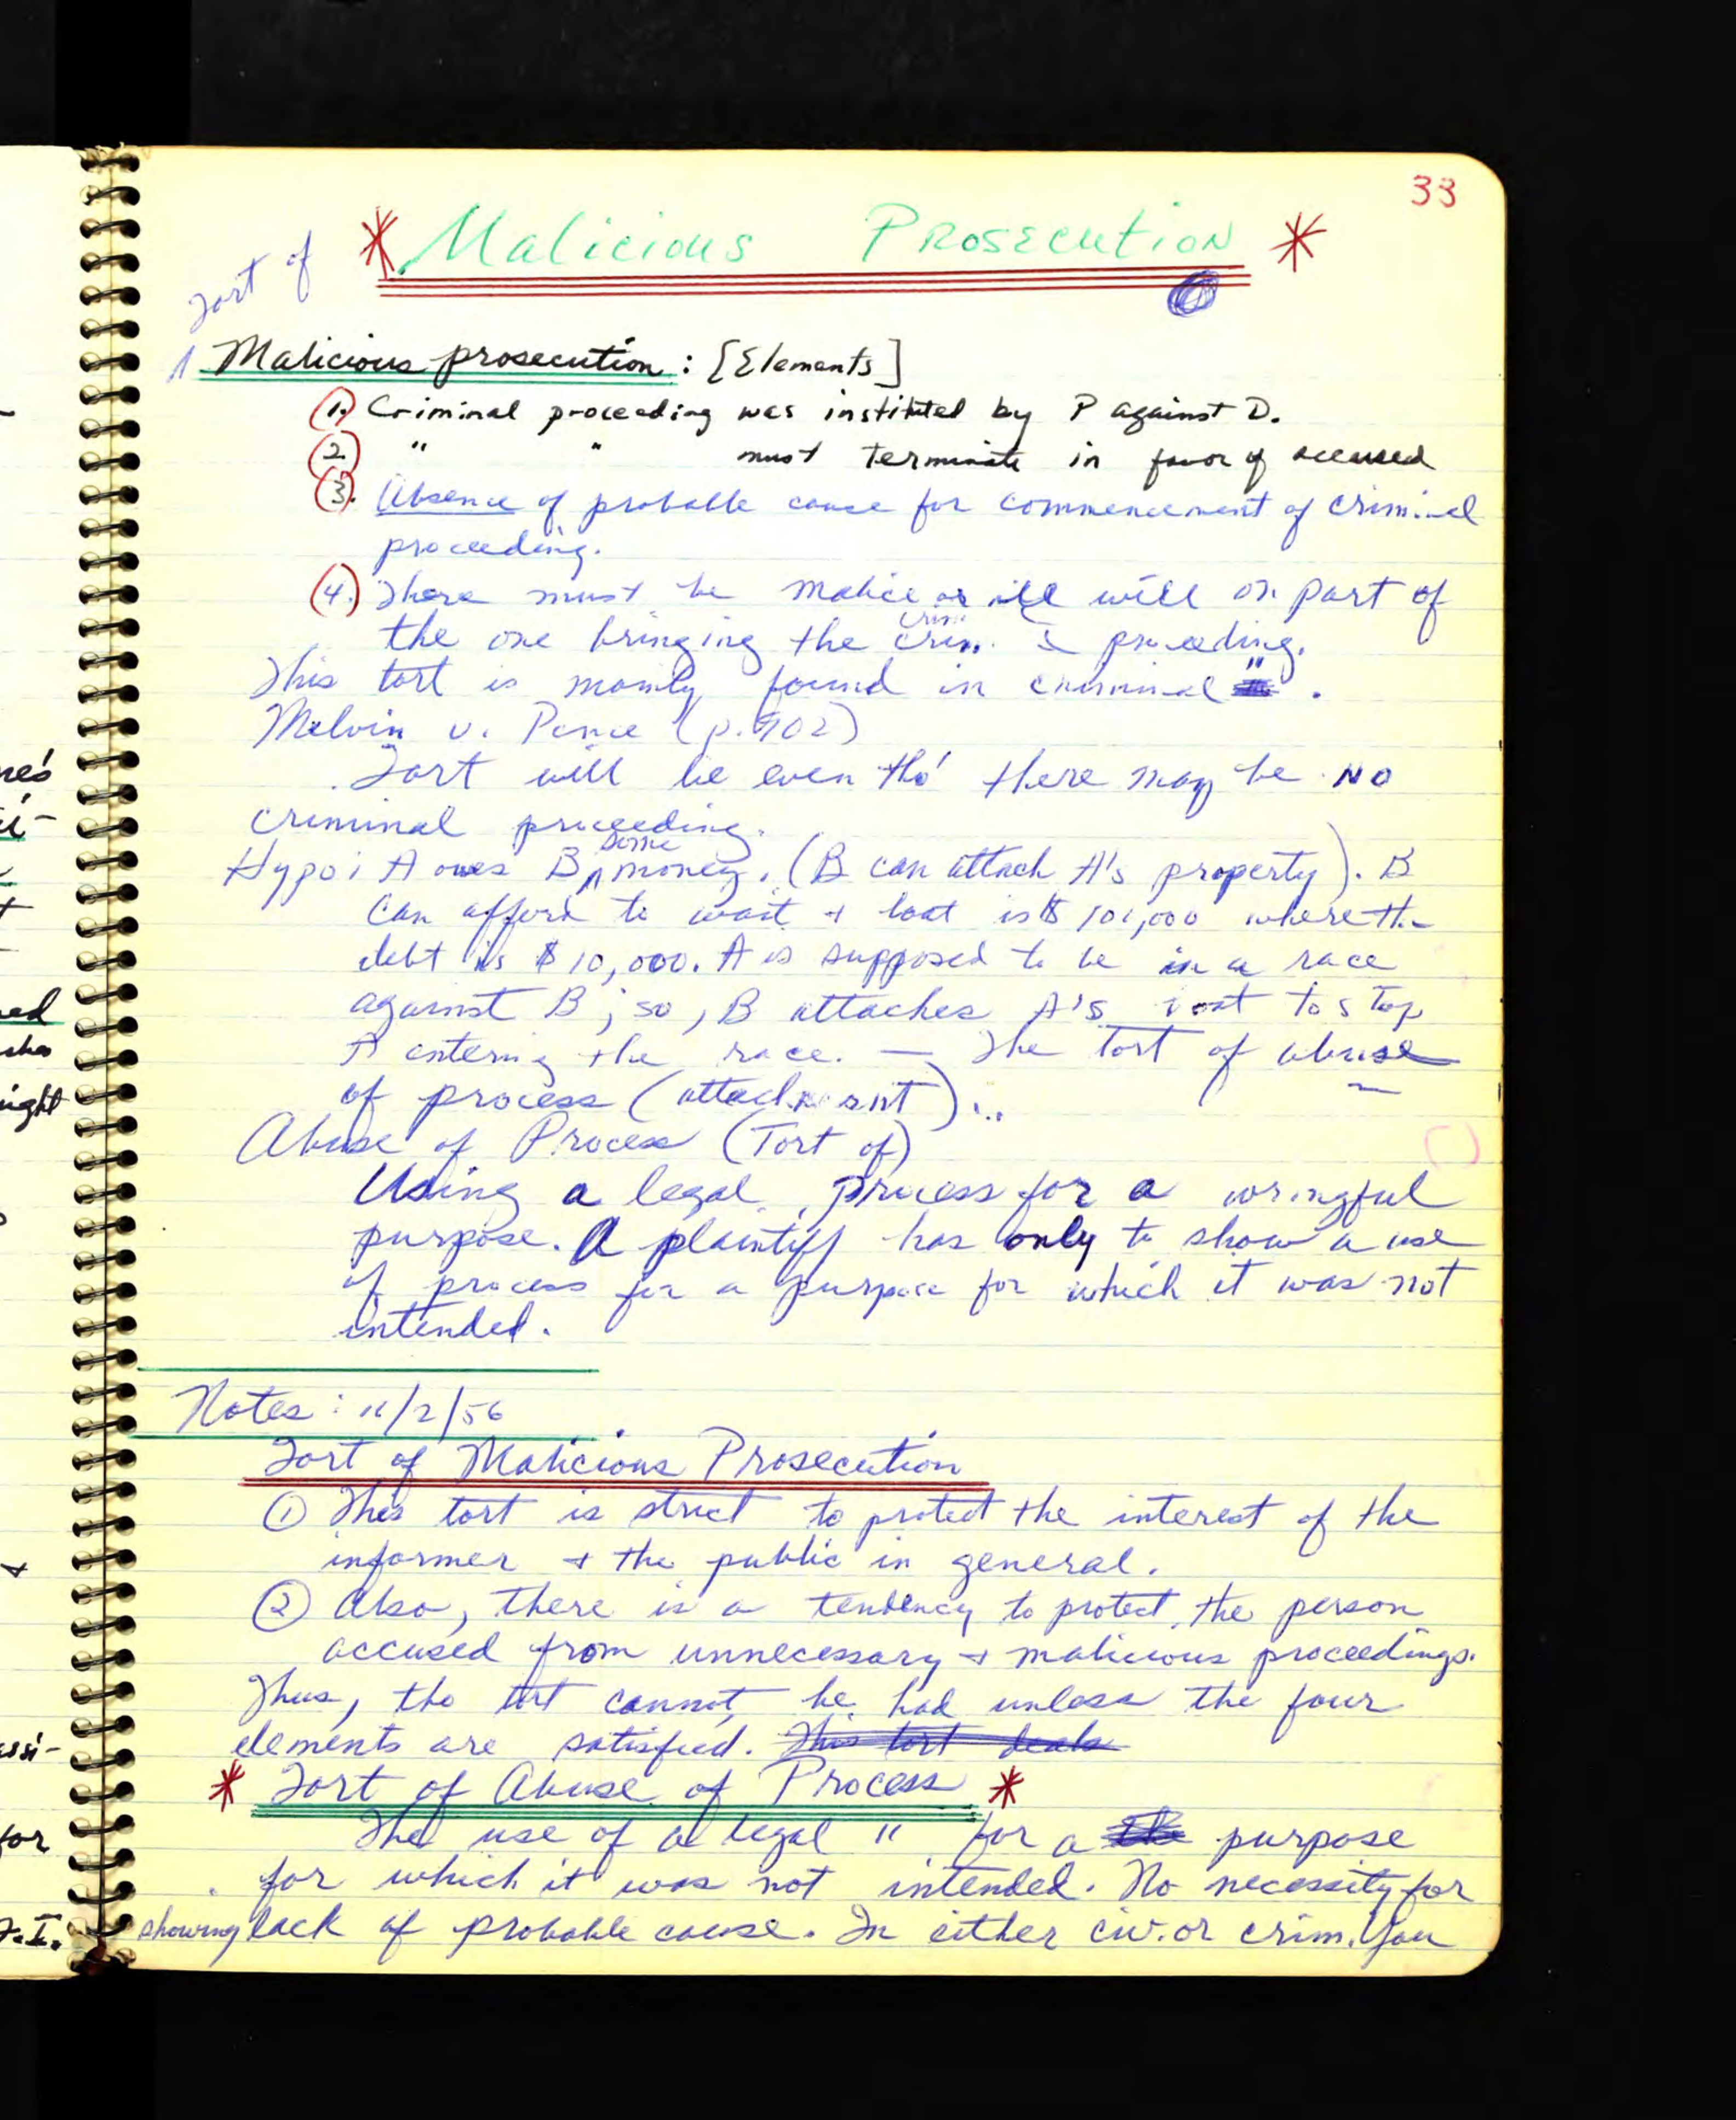 33
* Malicious Prosecution *
Tort of
Malicious prosecution: [Elements]
1. Criminal proceeding was instituted by P against D.
2. " " must terminate in favor of accused
3. Absence of probable cause for commencement of criminal
proceeding.
4. There must be malice or ill will on part of
the one bringing the crim. proceeding.
This tort is mainly found in criminal " .
Melvin v. Pence (p. 902)
Tort will lie even tho' there may be NO
criminal proceeding.
Hypo: A owes B some money. (B can attach A's property). B
can afford to wait + boat is $ 101,000 where the
debt is $10,000. A is supposed to be in a race
against B; so, B attaches A's boat to stop
A entering the race. — The tort of abuse
of process (attachment)...
Abuse of Process (Tort of)
Using a legal process for a wrongful
purpose. A plaintiff has only to show a use
of process for a purpose for which it was not
intended.
Notes: 11/2/56
Tort of Malicious Prosecution
① This tort is strict to protect the interest of the
informer + the public in general.
② Also, there is a tendency to protect the person
accused from unnecessary + malicious proceedings.
Thus, the tort cannot be had unless the four
elements are satisfied. This tort deals
* Tort of Abuse of Process *
The use of a legal " for a the purpose
for which it was not intended. No necessity for
showing lack of probable cause. In either civ. or crim. You
ne's
ci-
ned
sha
might
+
assi-
for
F.I.